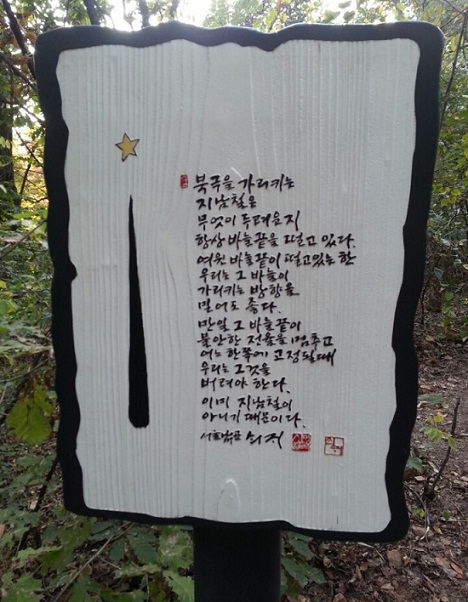 북극을 가리키는
지남철은
무엇이 두려운지
항상 바늘끝을 떨고 있다.
여윈 바늘끝이 떨고있는 한
우리는 그 바늘이
가리키는 방향을
믿어도 좋다.
만일 그 바늘끝이
불안한 전율을 멈추고
어느 한쪽에 고정될때
우리는 그것을
버려야 한다.
이미 지남철이
아니기 때문이다.